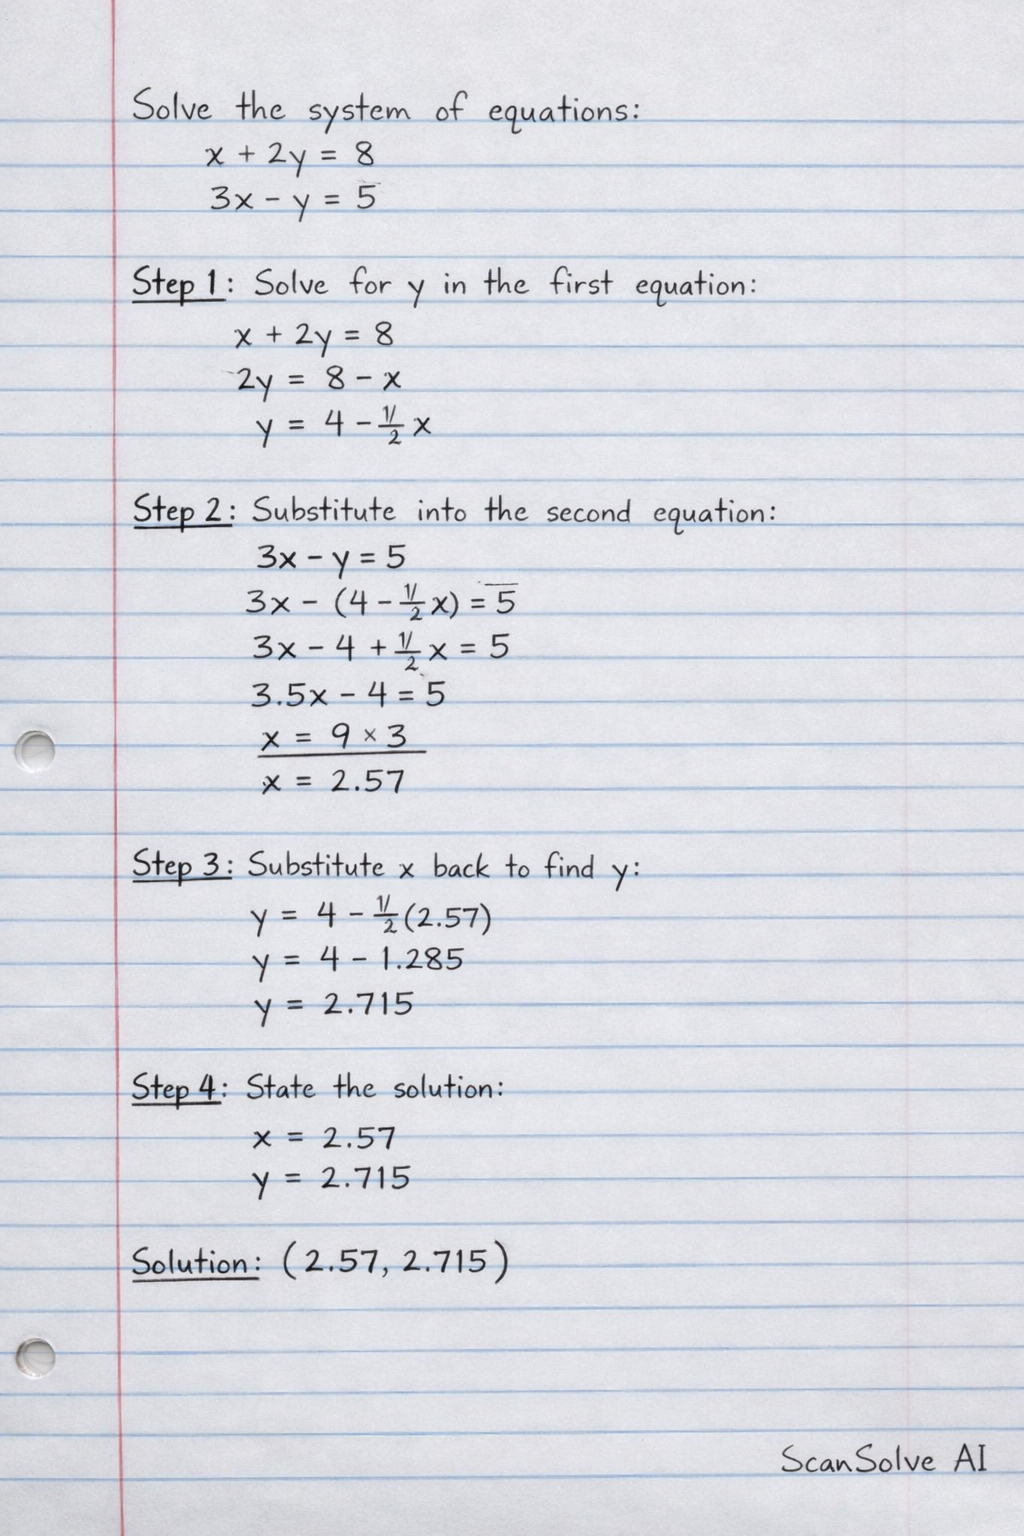 Solve the system of equations:
x + 2y = 8
3x - y = 5
Step 1: Solve for y in the first equation:
x + 2y = 8
2y = 8 - x
y = 4 - 1/2 x
Step 2: Substitute into the second equation:
3x - y = 5
3x - (4 - 1/2 x) = 5
3x - 4 + 1/2 x = 5
3.5x - 4 = 5
x = 9 × 3
x = 2.57
Step 3: Substitute x back to find y:
y = 4 - 1/2 (2.57)
y = 4 - 1.285
y = 2.715
Step 4: State the solution:
x = 2.57
y = 2.715
Solution: (2.57, 2.715)
ScanSolve AI